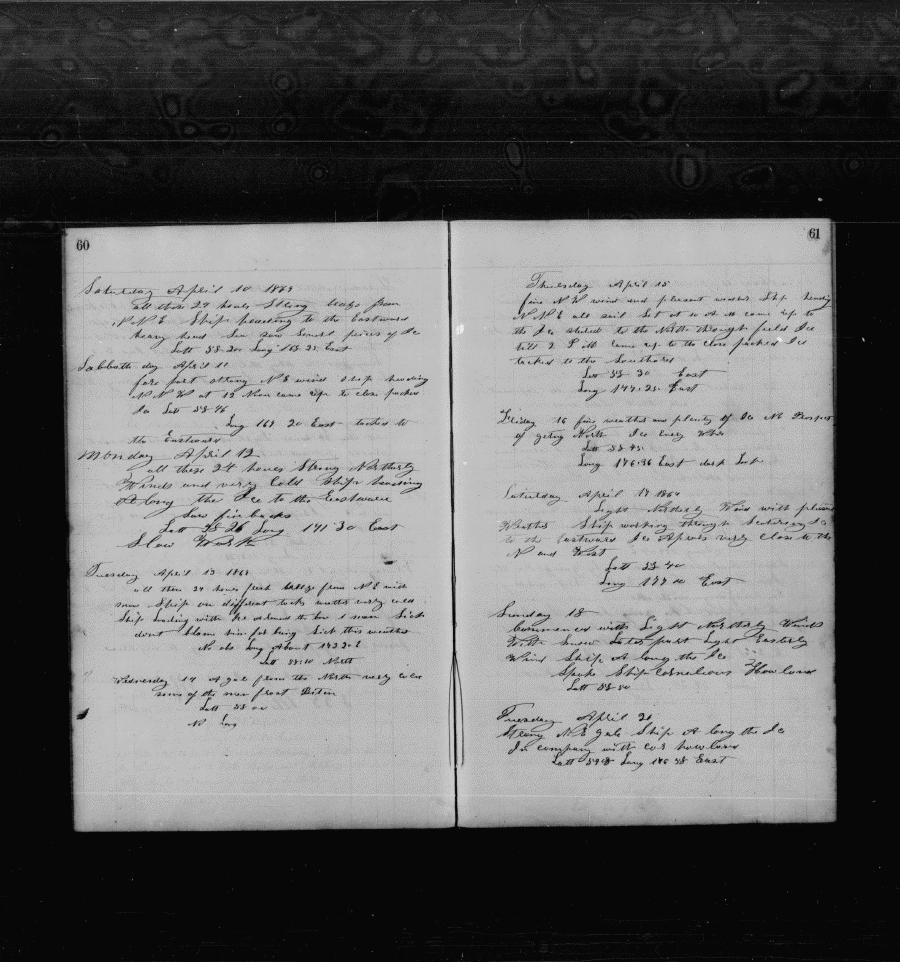 60
Saturday April 10 1869
all these 24 hours Strong breeze from
N N E Ship heading to the Eastward
heavy head Sea saw Small pieces of Ice
Latt 58 20 Long 169 25 East
Sabbath day April 11
fore part strong N E wind Ship heading
N N W at 12 Noon came up to close packed
Ice Latt 58 46
Long 169 20 East tacked to
the Eastward
Monday April 12
all these 24 hours Strong Northerly
Winds and very Cold Ship heading
A long the Ice to the Eastward
Saw fin backs
Latt 58 26 Long 171 30 East
Slow Work
Tuesday April 13 1869
all these 24 hours fresh breeze from N E with
snow Ship on different tacks weather very cold
Ship with Ice 1 man Sick
dont blame him for being Sick this weather
No obs Long About 173 30 E
Latt 58 10 North
Wednesday 14 A gale from the North very cold
some of the men frost Biten
Latt 58 00
No Long
61
Thursday April 15
fine N W wind and plesent weather Ship heading
N N E all sail Set at 10 A M came up to
the Ice to the North through field Ice
till 2 P M came up to the close packed Ice
tacked to the Southard
Latt 58 30 East
Long 177 25 East
Friday 16 fine weather and plenty of Ice No Prospect
of geting North Ice Every Where
Latt 58 45
Long 176 36 East dark Look
Saturday April 17 1869
Light Northerly Wind with plesent
Weather Ship working through Ice
to the Eastward Ice Apears very Close to the
N and West
Latt 58 40
Long 177 00 East
Sunday 18
Commences with Light Northerly Winds
With Snow Later part Light Easterly
Wind Ship A long the Ice
Spoke Ship Cornelious Howland
Latt 58 50
Tuesday April 20
Strong N E gale Ship A long the Ice
In company with Cor howland
Latt 59 8 Long 176 48 East